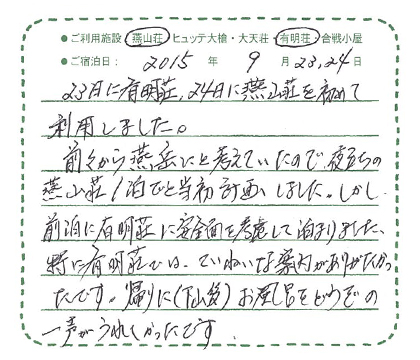 ●ご利用施設 燕山荘・ヒュッテ大槍・大天荘・有明荘・合戦小屋
●ご宿泊日： 2015 年 9 月 23,24日
23日に有明荘,24日に燕山荘を初めて
利用しました。
前々から燕岳にと考えていたので、夜立ちの
燕山荘1泊でと当初計画しました。しかし
前泊に有明荘に安全面を考慮して泊まりました、
特に有明荘では、ていねいな案内がありがたかっ
たです。帰りに(下山後)お風呂をどうぞの
一声がうれしかったです。